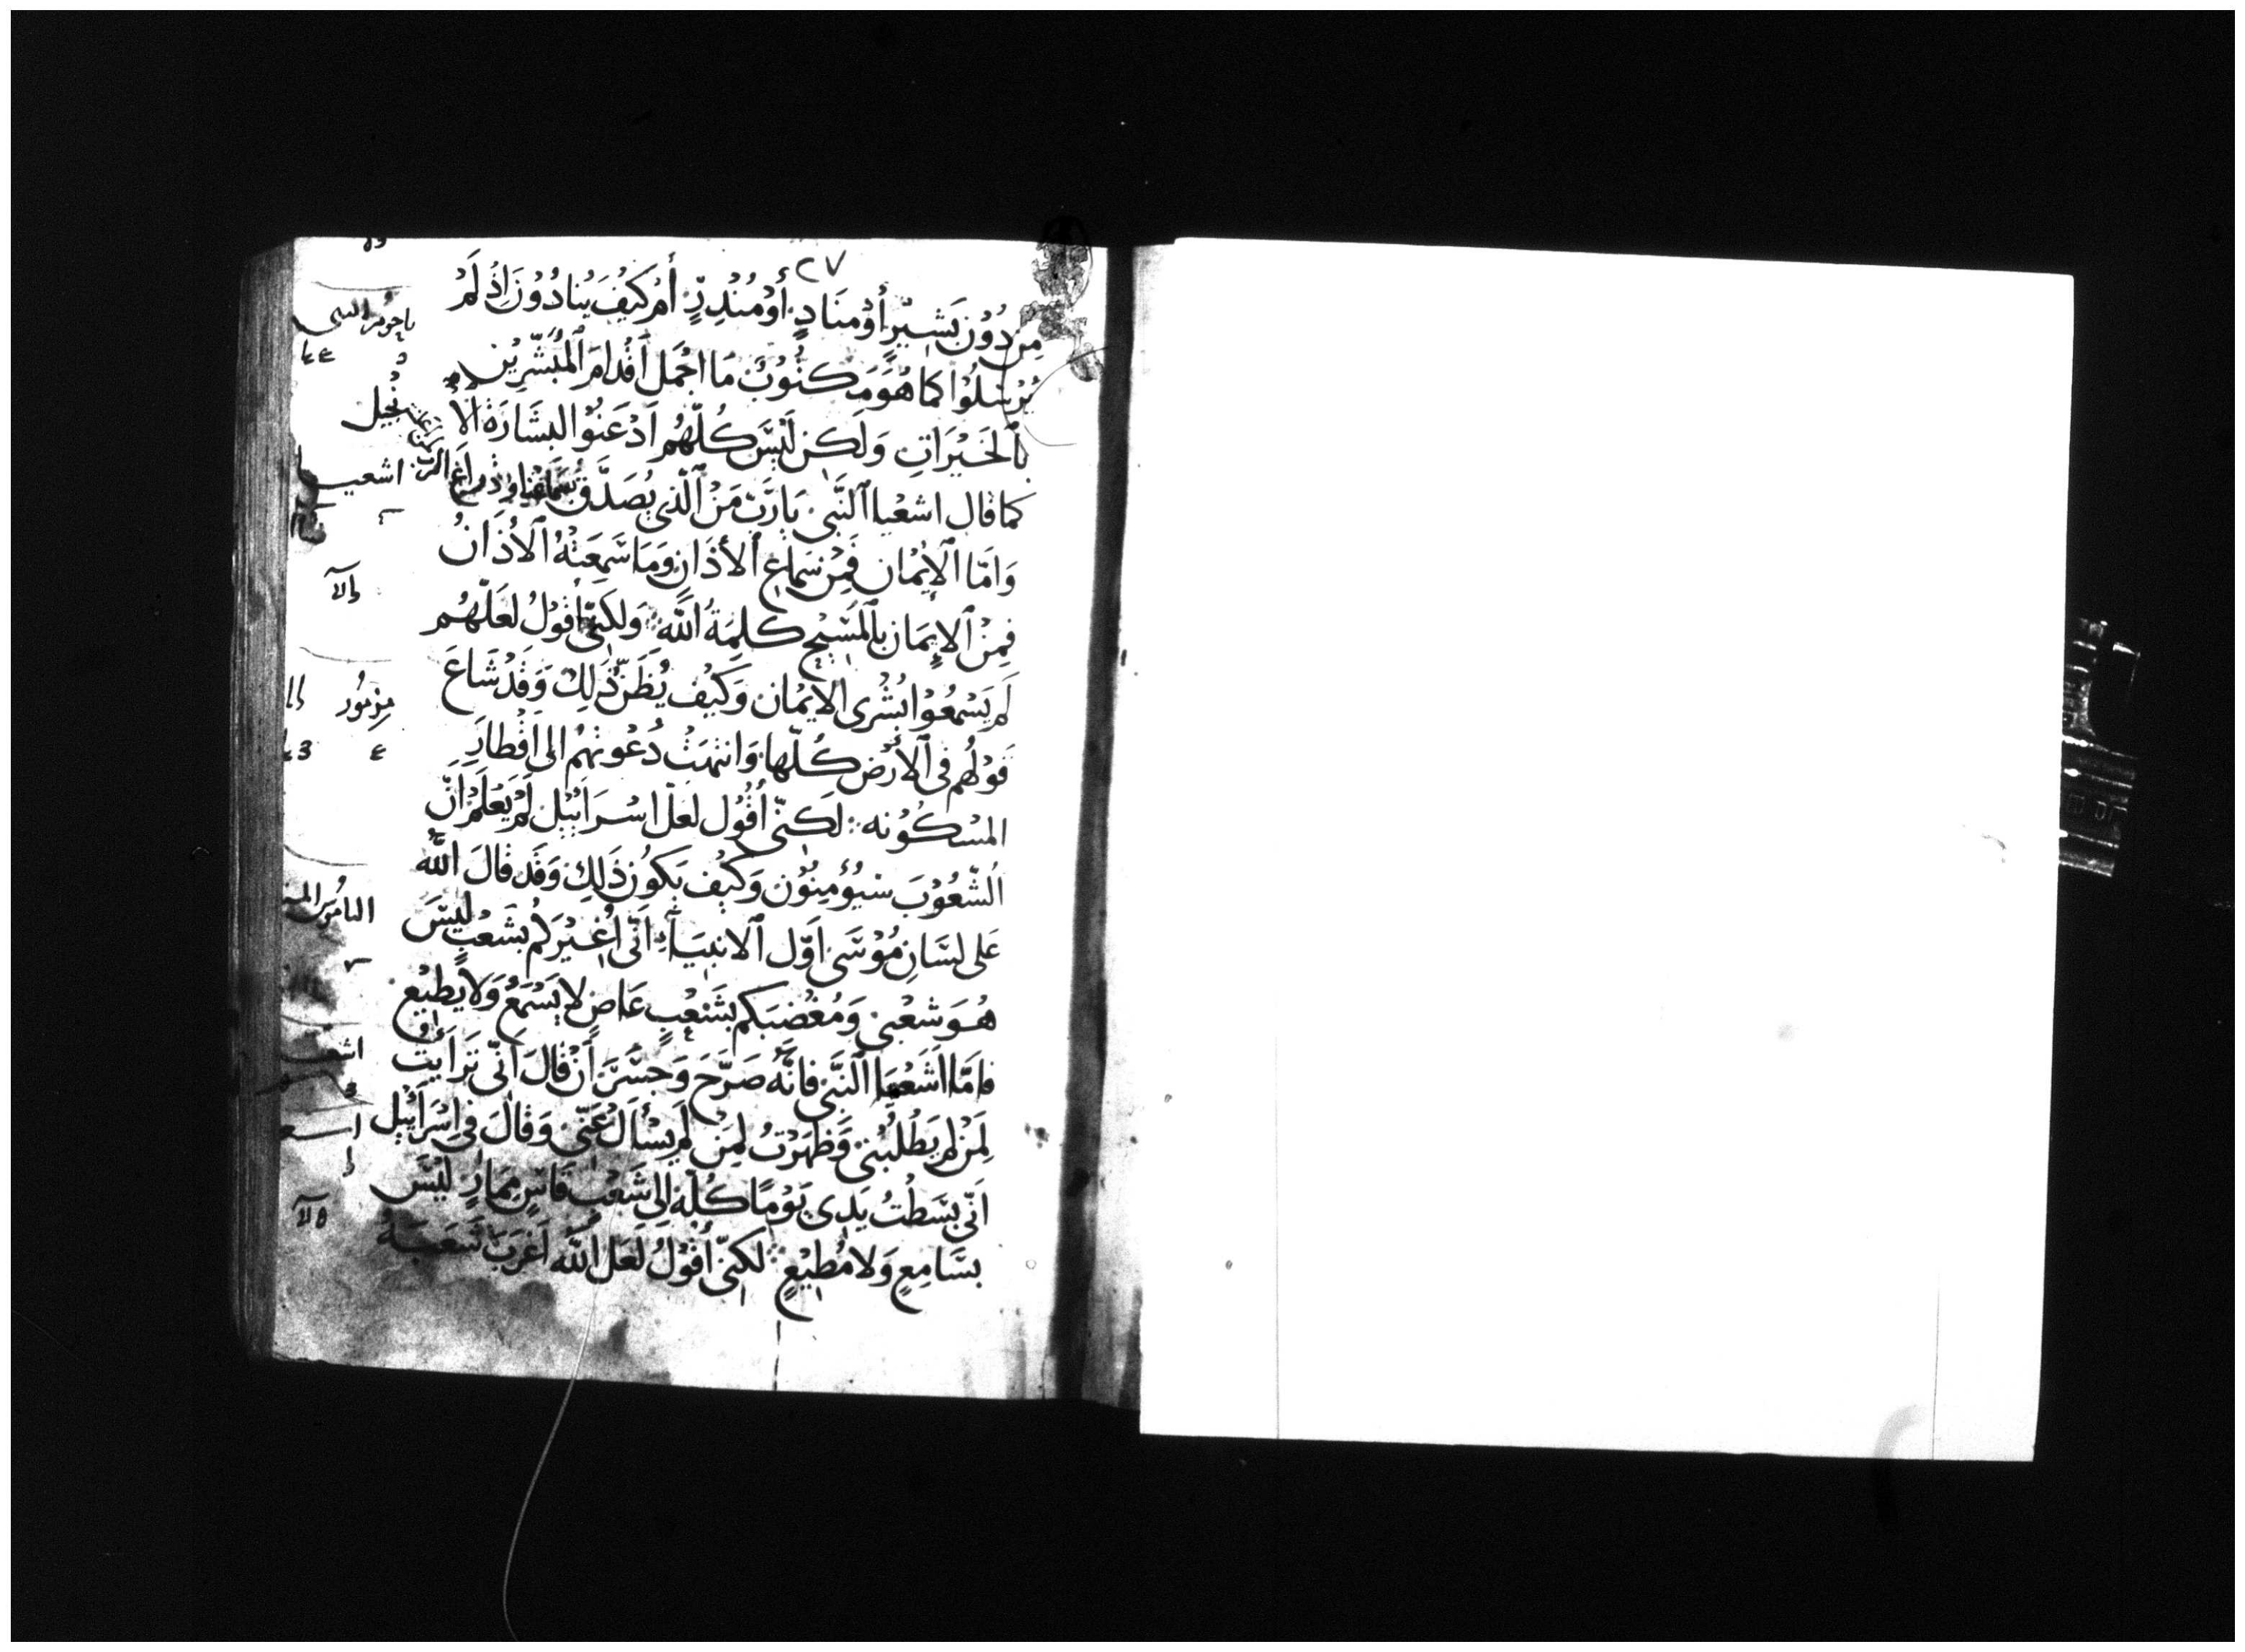 ٢٧
مِن دُوْن بَشِيْرٍ أوْ مُنَادٍ أَوْ مُنْذِرٍ أمْ كَيْفَ يُنَادُوْنَ إِذْ لَمْ
يُرْسَلُوْا كَمَا هُوَ مَكتُوْبٌ مَا اجْمَل اَقْدَامَ ٱلْمُبَشِّرِيْن
بِٱلخَيْرَاتِ وَلَكِن لَيْسَ كُلّهُم اَذعَنُوْا لبشَارَة الا
نْجِيل
كما قال اشعْيا ٱلنَّبِى يَارَبّ مَنْ ٱلّذِى يُصَدّق سَمَاعْنَا وذراع الربّ
وَامّا ٱلإيْمَان فَمِنْ سَمَاعِ ٱلأذَانِ وَمَا سَمِعَتْهُ ٱلأذَانُ
فِمِنْ ٱلإيمَان بِٱلمَسِيْحِ كلِمَةُ اللّه وَلَكِنِّى أقُوْلُ لَعَلّهُم
لَم يَسْمَعُوْا بُشْرى الإيْمَان وَكَيْف يُظَنّ ذَلِكَ وَقَدْ شَاعَ
قَوْلُهم فِى ٱلأرْض كُلّها وَانتهَتْ دُعْوتهُمْ الى اَقْطارِ
المَسْكُوْنه لَكِنّى أقُوْل لعَلّ اسْرَائيْل لَمْ يَعْلَمْ اَنّ
الشّعُوْبَ سَيُؤْمِنُوْن وَكَيْف يَكوُن ذَلِكَ وَقَد قَالَ اللّه
عَلى لِسَانِ مُوْسَى اَوّل ٱلانبيَآءِ اَنّى اُغَيْركُم بشَعْبٍ لَيْسَ
هُوَ شعْبِى وَمُغضبَكم بشَعْبٍ عَاصٍ لا يَسْمَعُ وَلا يُطِيْع
فَامَّا اشَعْيَا ٱلنَّبِى فانَّه صَرّحَ وَجَسَرَ أَنْ قالَ اَنّى تَرَايَيْت
لِمَنْ لم يَطْلُبْنِى وَظهَرْتُ لِمَن لَم يسْأل عَنِّى وَقَالَ فى اسْرَائيْل
اَنّى بسَطْتُ يَدِى يَوْمًا كُلّهُ الى شَعْبٍ قَاسٍ مِمَارٍ لَيْسَ
بسَامِعٍ وَلا مُطِيْعٍ لَكِنّى أقُوْلُ لَعَل اللّه اَغْرَبَ شَعبَهُ
ناحوم النبى
اشعيا
مزمور
الناموس
اشعيا